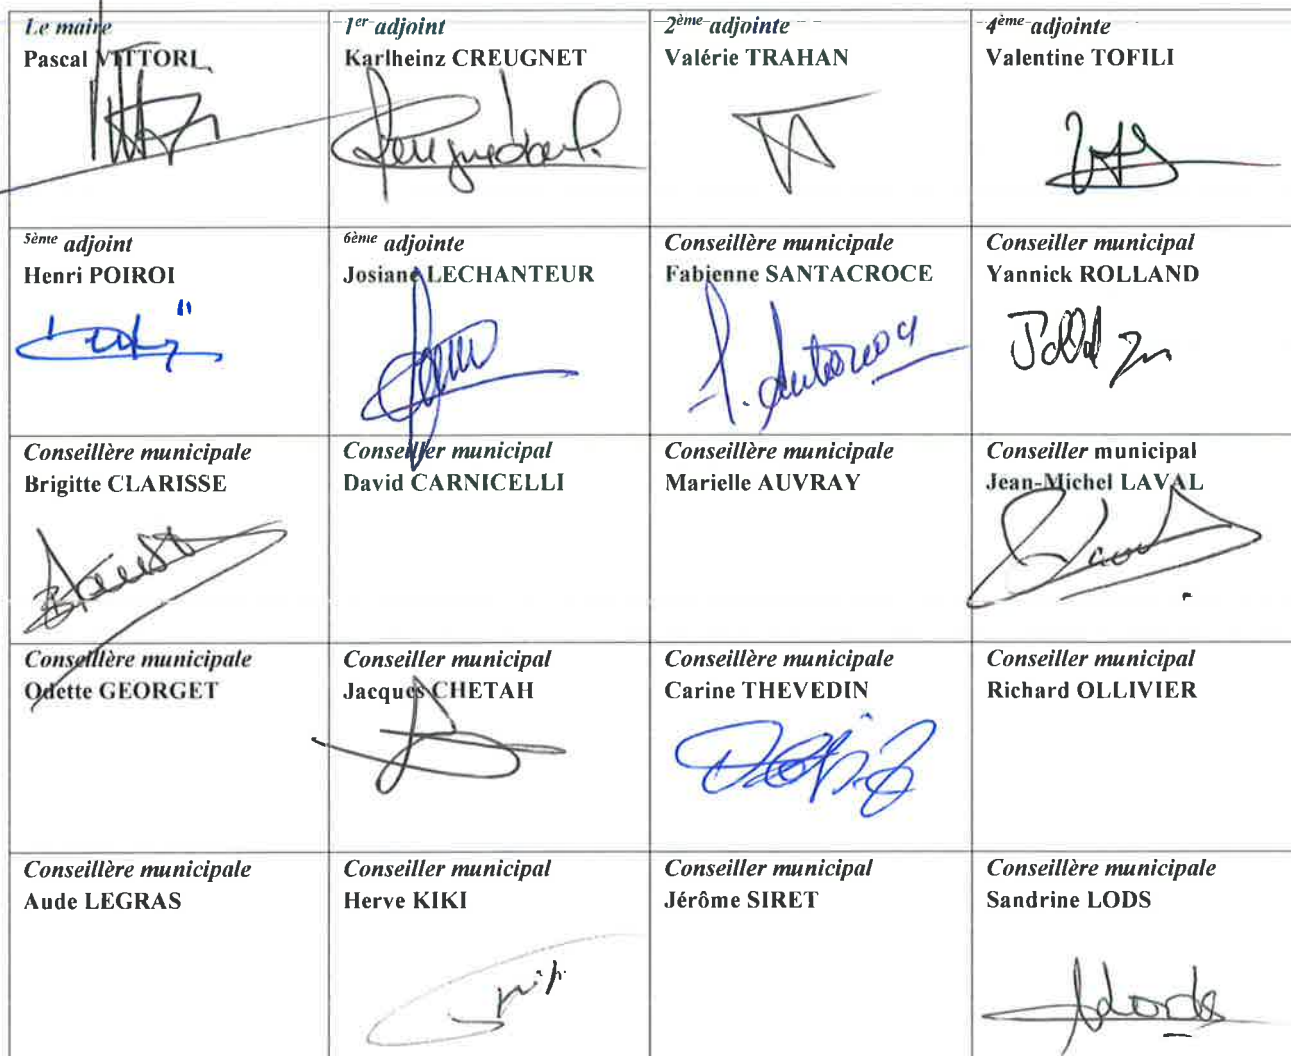 Le maire
Pascal VITTORI
1er adjoint
Karlheinz CREUGNET
2ème adjointe
Valérie TRAHAN
4ème adjointe
Valentine TOFILI
5ème adjoint
Henri POIROI
6ème adjointe
Josiane LECHANTEUR
Conseillère municipale
Fabienne SANTACROCE
Conseiller municipal
Yannick ROLLAND
Conseillère municipale
Brigitte CLARISSE
Conseiller municipal
David CARNICELLI
Conseillère municipale
Marielle AUVRAY
Conseiller municipal
Jean-Michel LAVAL
Conseillère municipale
Odette GEORGET
Conseiller municipal
Jacques CHETAH
Conseillère municipale
Carine THEVEDIN
Conseiller municipal
Richard OLLIVIER
Conseillère municipale
Aude LEGRAS
Conseiller municipal
Herve KIKI
Conseiller municipal
Jérôme SIRET
Conseillère municipale
Sandrine LODS